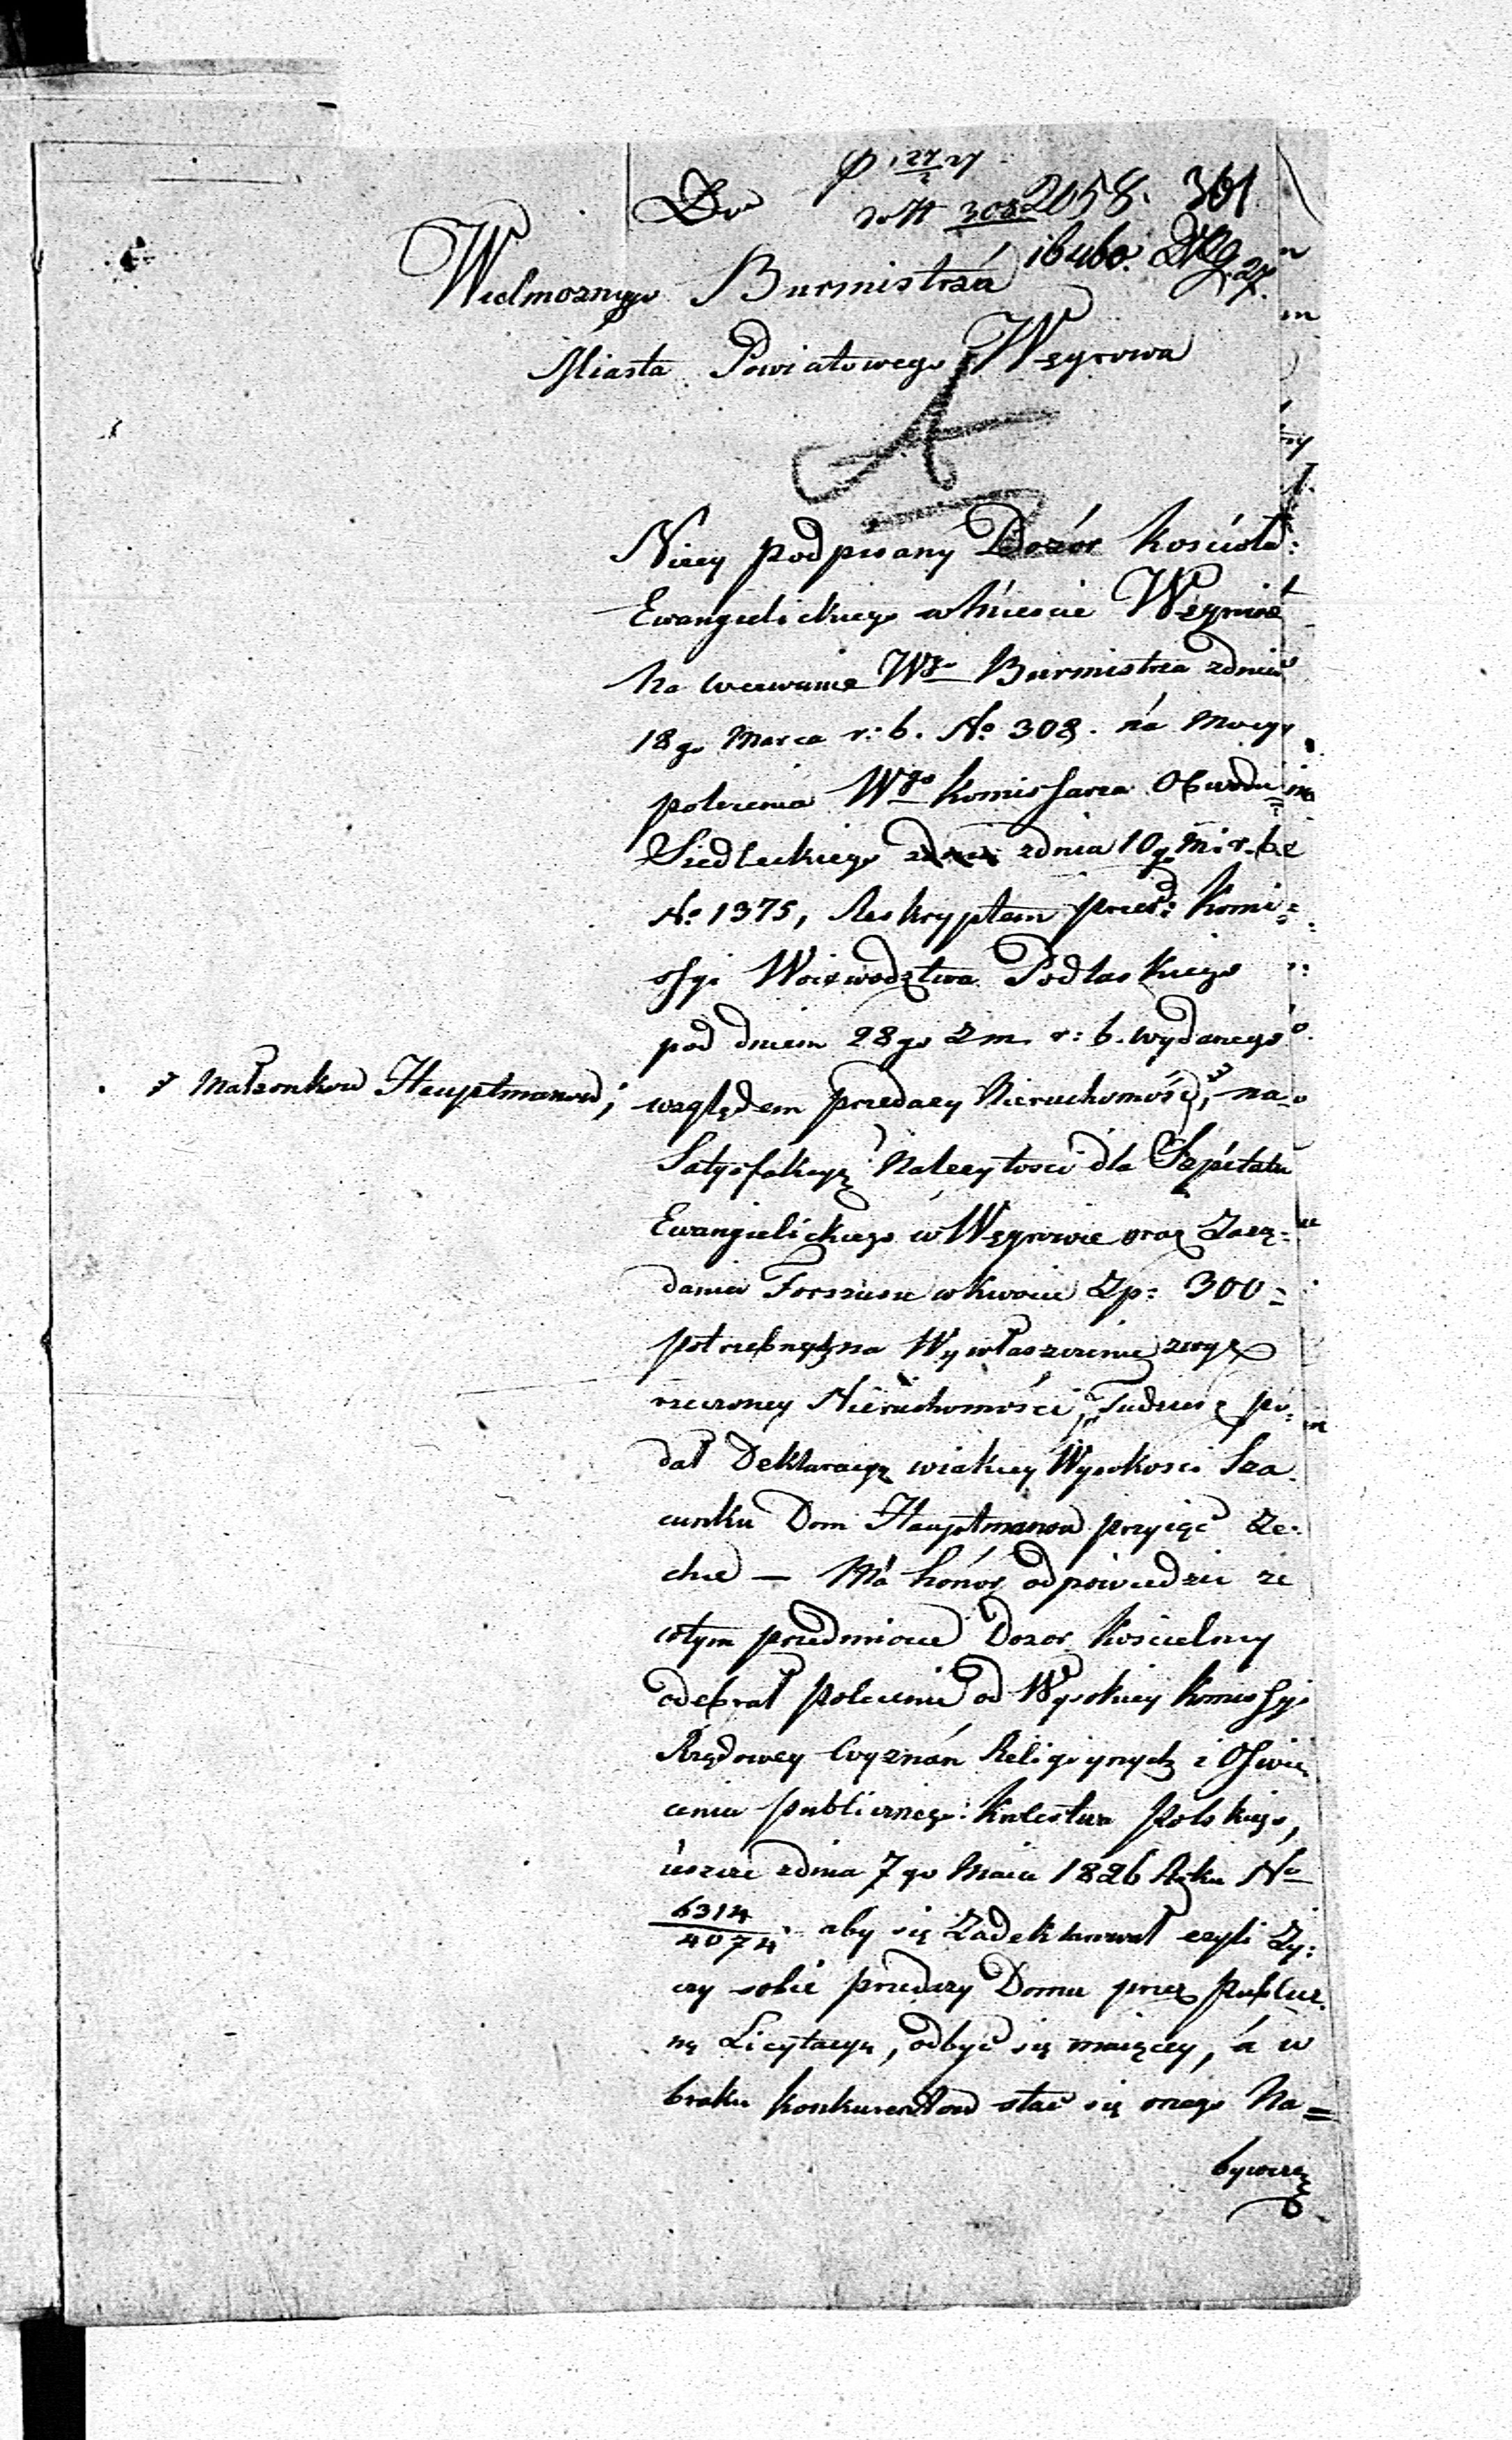 Do
No 308. 2058. 301
Wielmoznego Burmistrza
Miasta Powiatowego Węgrowa
Nizey podpisany Dozór Kościoła
Ewangelickiego w Mieście Węgrowie
na wezwanie Wgo Burmistrza z dnia
18go Marca r: b. No 308. na mocy
polecenia Wgo Komissarza Obwodu
Siedleckiego z dnia 10go m. i r. b.
No 1375, Reskryptem prześ: Komi=
ssyi Woiewodztwa Podlaskiego
pod dniem 28go z m. r: b. wydanego
względem przedazy Nieruchomości, na
Małżonkow Hauptmanow;
Satysfakcyę Nalezytosci dla Szpitalu
Ewangielickiego w Węgrowie oraz Zaże=
dania Forszusu w kwocie Zp: 300=
potrzebnych na Wywłaszczenie
rzeczoney Nieruchomości, Tudzież po=
dał Deklaracyę w iakiey Wysokosci Sza=
cunku Dom Hauptmanow przyiąć ze=
chce — Ma honor odpowiedzieć że
w tym przedmiocie Dozor Kościelny
odebrał polecenie od Wysokiey Komissyi
Rządowey Wyznań Religiynych i Oświe
cenia publicznego Krolestwa Polskiego,
ieszcze z dnia 7go Maia 1826 Roku No
6314/4074 aby się Zadeklarował czyli Zy:
czy sobie przedazy Domu przez Publicz=
ną Licytacyę, odbyć się maiącey, a w
braku Konkurentow stać się onego Na=
bywcą